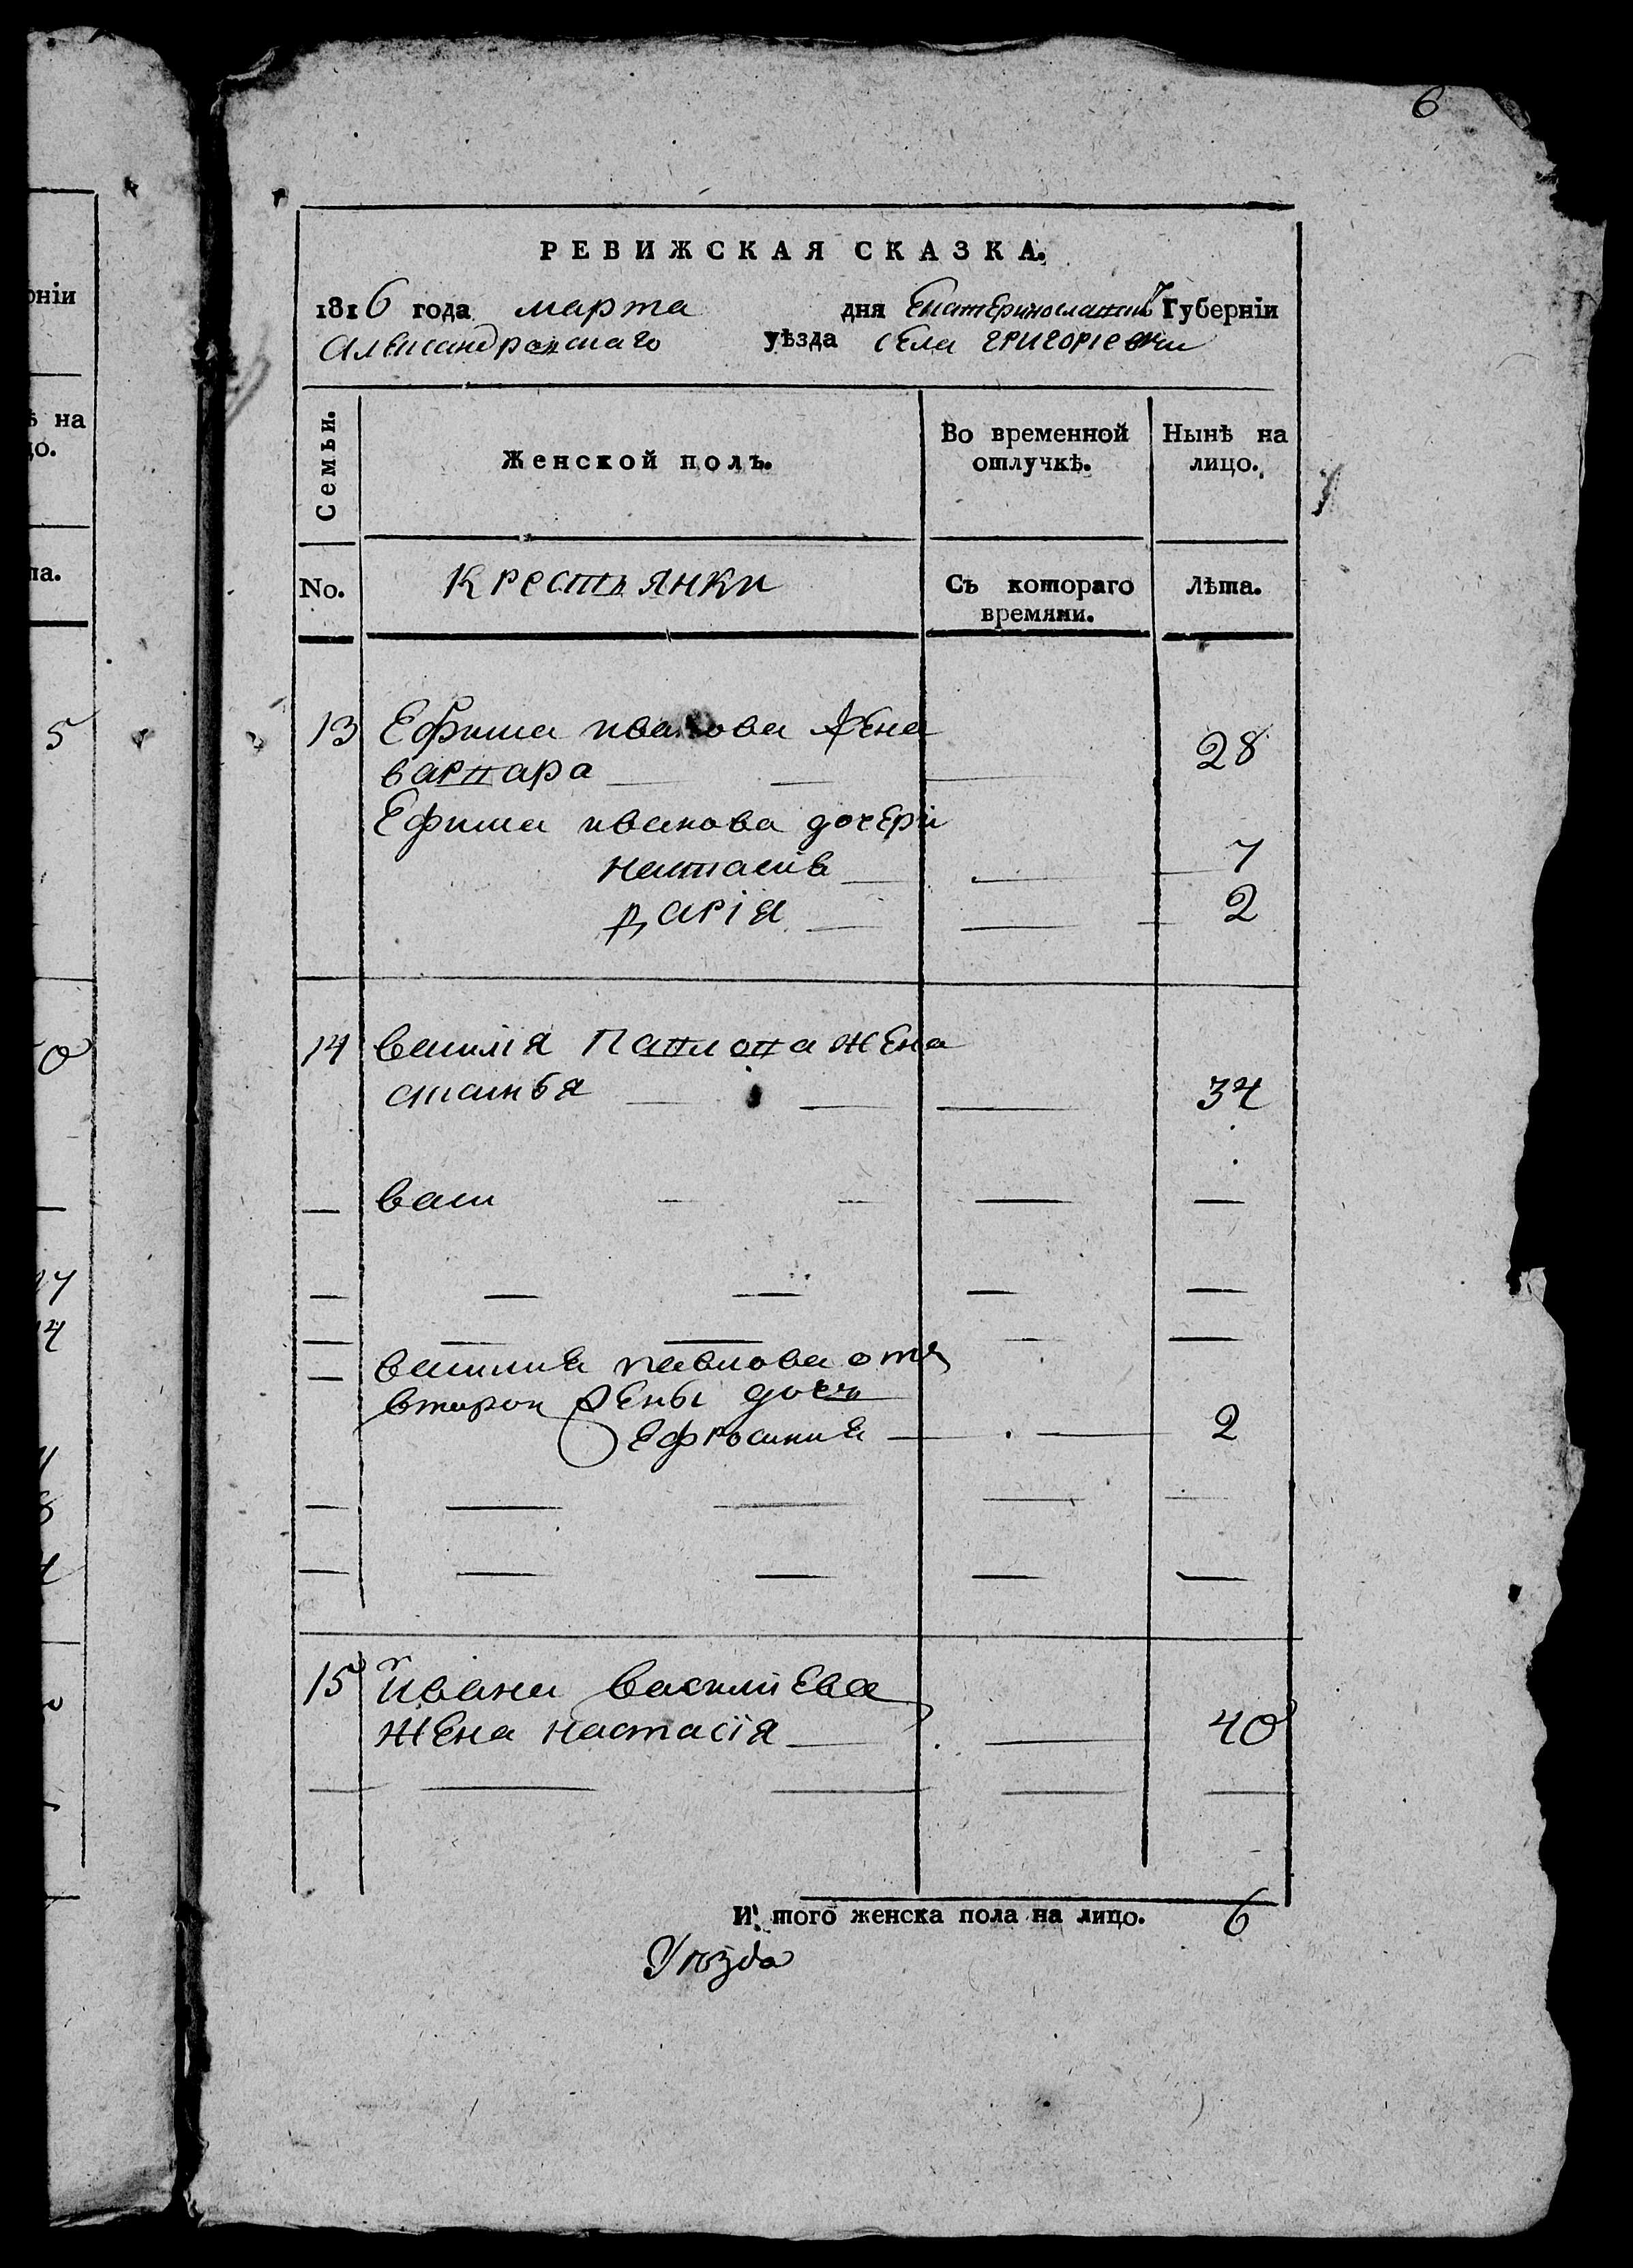 6
РЕВИЖСКАЯ СКАЗКА.
1816 года марта дня Екатеринославской Губерніи
Александровскаго уѣзда села григоріевки
Семьи.
Женской полъ.
Во временной отлучкѣ.
Нынѣ на лицо.
No.
Крестьянки
Съ котораго времяни.
Лѣта.
13 Ефима иванова жена
варвара 28
Ефима иванова дочери
настасия 7
даріа 2
14 василія Павлова жена
34
васи
василия павлова отъ
второй жены дочь
ефросиния 2
15 ивана василиева
жена настасія 40
И того женска пола на лицо. 6
уѣзда
оніи
ѣ на
цо.
та.
5
0